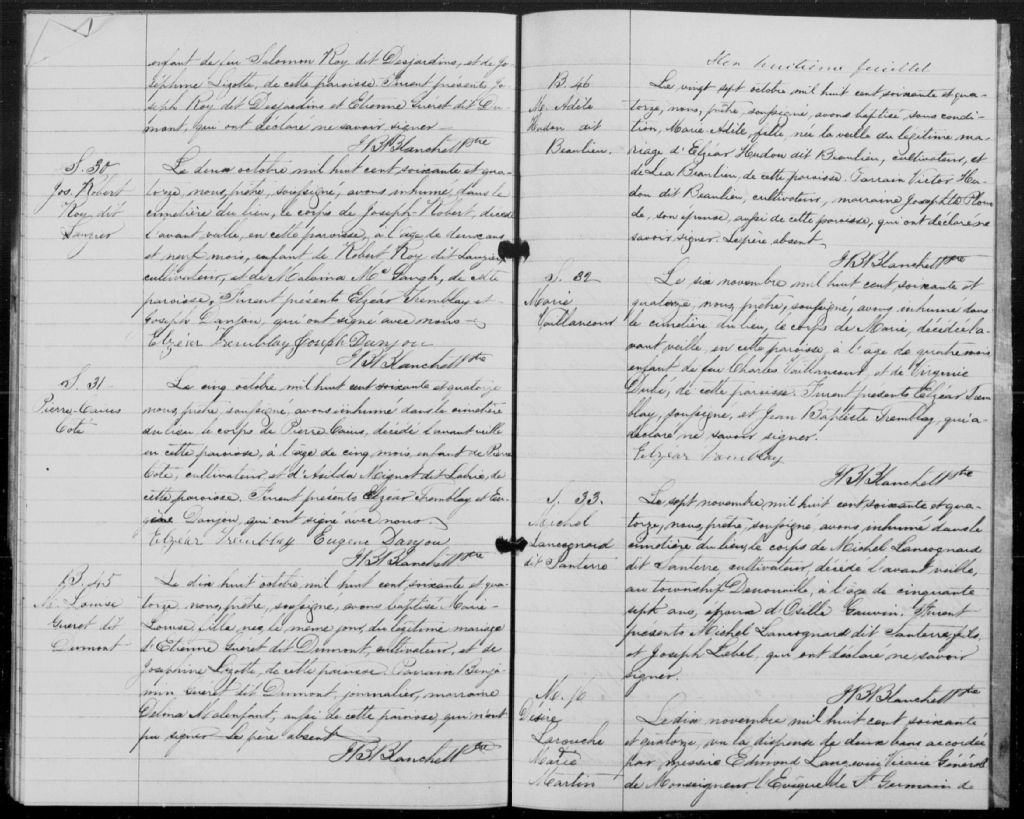 enfant de feu Salomon Roy dit Desjardins, et de Jo-
séphine Lizotte, de cette paroisse. Furent présents, Jo-
seph Roy dit Desjardins et Etienne Gueret dit Du-
mont, qui ont déclaré ne savoir signer
J.B. Blanchett Ptre
S. 30
Jos. Robert
Roy dit
Lauzier
Le deux octobre mil huit cent soixante et qua-
torze, nous, prêtre, soussigné, avons inhumé dans le
cimetière du lieu, le corps de Joseph-Robert, décédé
l'avant veille, en cette paroisse, à l'âge de deux ans
et neuf mois, enfant de Robert Roy dit Lauzier,
cultivateur, et de Malvina de cette
paroisse. Furent présents Elzéar Tremblay et
Joseph Danjou, qui ont signé avec nous
Elzéar Tremblay Joseph Danjou
J.B. Blanchett Ptre
S. 31
Pierre-Caius
Coté
Le cinq octobre, mil huit cent soixante et quatorze
nous, prêtre, soussigné, avons inhumé dans le cimetière
du lieu le corps de Pierre Caius, décédé l'avant veille
en cette paroisse, à l'âge de cinq mois, enfant de Pierre
Coté, cultivateur, et d'Asilda Mignot dit Labrie, de
cette paroisse. Furent présents Elzéar Tremblay et Eu-
gène Danjou, qui ont signé avec nous.
Elzéar Tremblay Eugène Danjou
J.B. Blanchett Ptre
B. 45
M. Louise
Gueret dit
Dumont
Le dix huit octobre, mil huit cent, soixante et qua-
torze, nous, prêtre, soussigné, avons baptisé Marie-
Louise, fille, née le même jour, du légitime mariage
d'Etienne Guéret dit Dumont, cultivateur, et de
Josephine Lizotte, de cette paroisse. Parrain Benja-
min Gueret dit Dumont, journalier, marraine
Delina Malenfant, aussi de cette paroisse, qui n'ont
pu signer. Le père absent
J.B. Blanchett Ptre
huitième feuillet
B. 46
M. Adèle
Hudon dit
Beaulieu.
Le vingt sept octobre mil huit cent soixante et qua-
torze, nous, prêtre, soussigné, avons baptisé, sous condi-
tion, Marie Adèle, fille, née la veille du légitime ma-
riage d'Elzéar Hudon dit Beaulieu, cultivateur, et
de Léa Beaulieu, de cette paroisse. Parrain Victor Hu-
don dit Beaulieu, cultivateur, marraine Josephte Plour-
de, son épouse, aussi de cette paroisse, qui ont déclaré ne
savoir signer. Le père absent
J.B. Blanchett Ptre
S. 32
Marie
Vaillancour
Le six novembre mil huit cent, soixante et
quatorze, nous, prêtre, soussigné, avons inhumé dans
le cimetière du lieu, le corps de Marie, décédée l'a-
vant veille, en cette paroisse, à l'âge de quatre mois
enfant de feu Charles Vaillancour, et de Virginie
Dubé, de cette paroisse. Furent présents Elzéar Trem-
blay, soussigné, et Jean Baptiste Tremblay, qui a
déclaré ne savoir signer.
Elzéar Tremblay
J.B. Blanchett Ptre
S. 33.
Michel
Lancognard
dit Santerre
Le sept novembre mil huit cent soixante et qua-
torze, nous, prêtre, soussigné, avons inhumé dans le
cimetière du lieu, le corps de Michel Lancognard
dit Santerre cultivateur, décédé l'avant veille,
au township Denonville, à l'âge de cinquante
sept ans, époux d'Osille Gauvin. Furent
présents Michel Lancognard dit Santerre, fils,
et Joseph Lebel, qui ont déclaré ne savoir
signer.
J.B. Blanchett Ptre
M. 16
Désiré
Larouche
Marie
Martin
Le dix novembre mil huit cent soixante
et quatorze, vu la dispense de deux bans accordée
par messire Edmond Langevin Vicaire Général
de Monseigneur l'Evêque de St Germain de